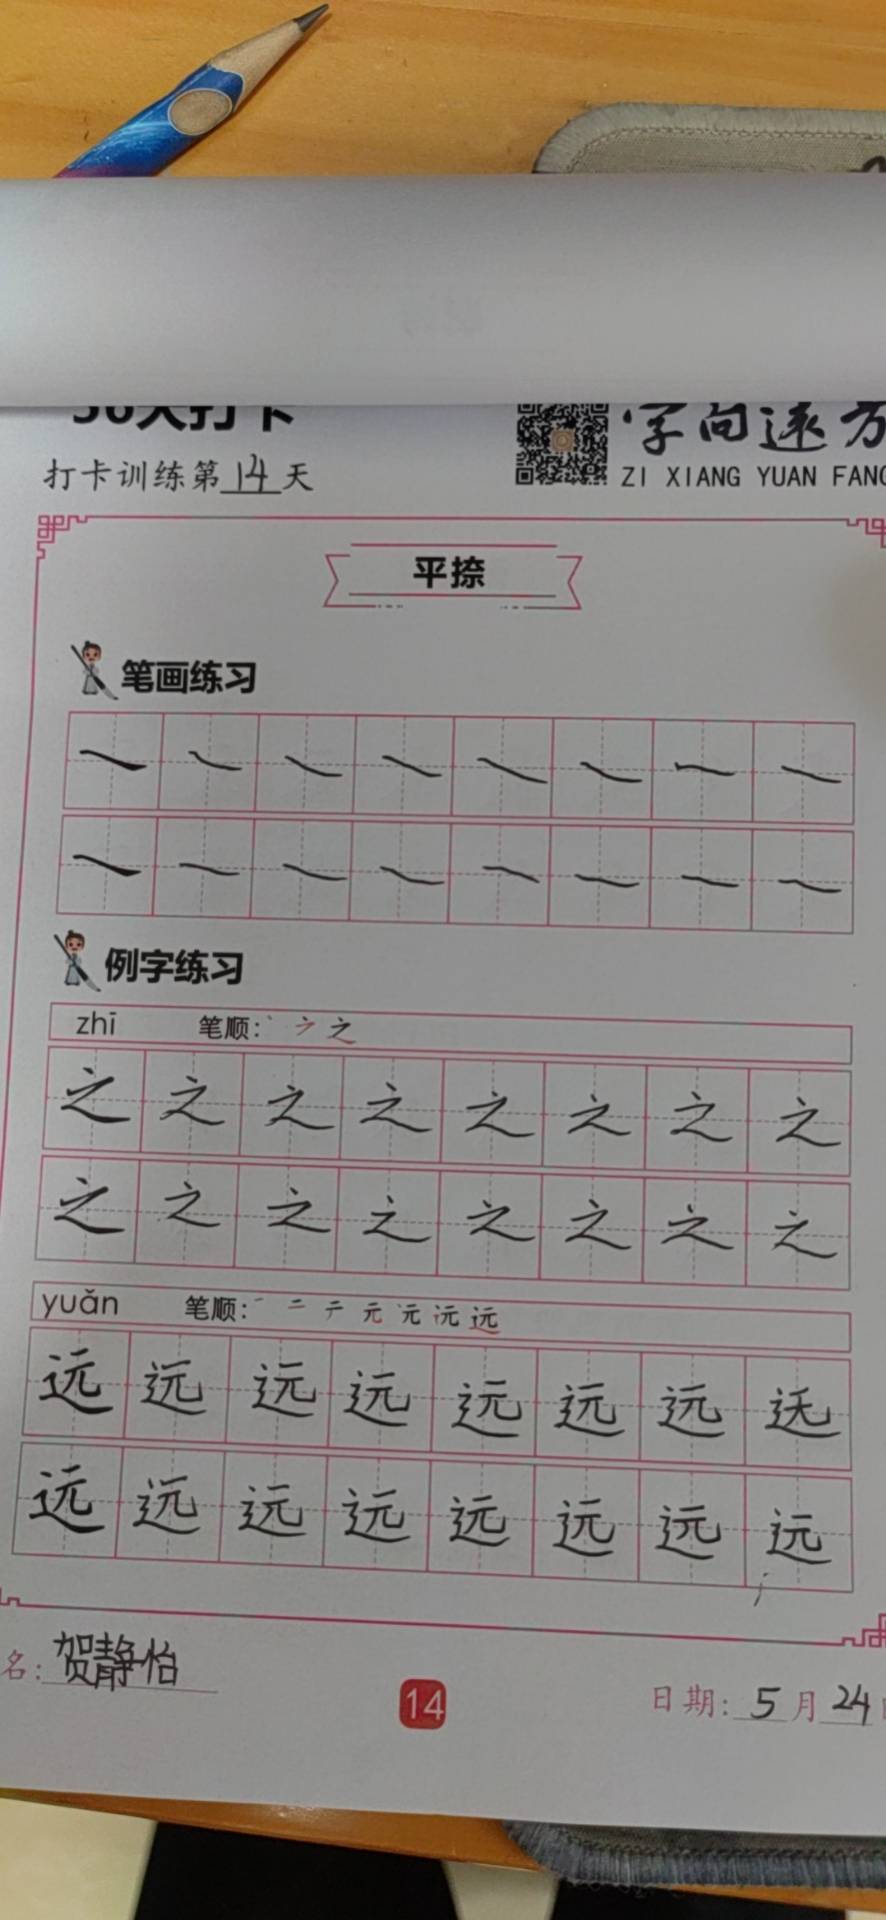 打卡训练第14天
字向远方
ZI XIANG YUAN FANG
平捺
笔画练习
例字练习
zhī 笔顺: 之
之 之 之 之 之 之 之 之
之 之 之 之 之 之 之 之
yuǎn 笔顺: 一 二 テ 元 元 远 远
远 远 远 远 远 远 远 迗
远 远 远 远 远 远 远 远
名: 贺静怡
14
日期: 5月24日